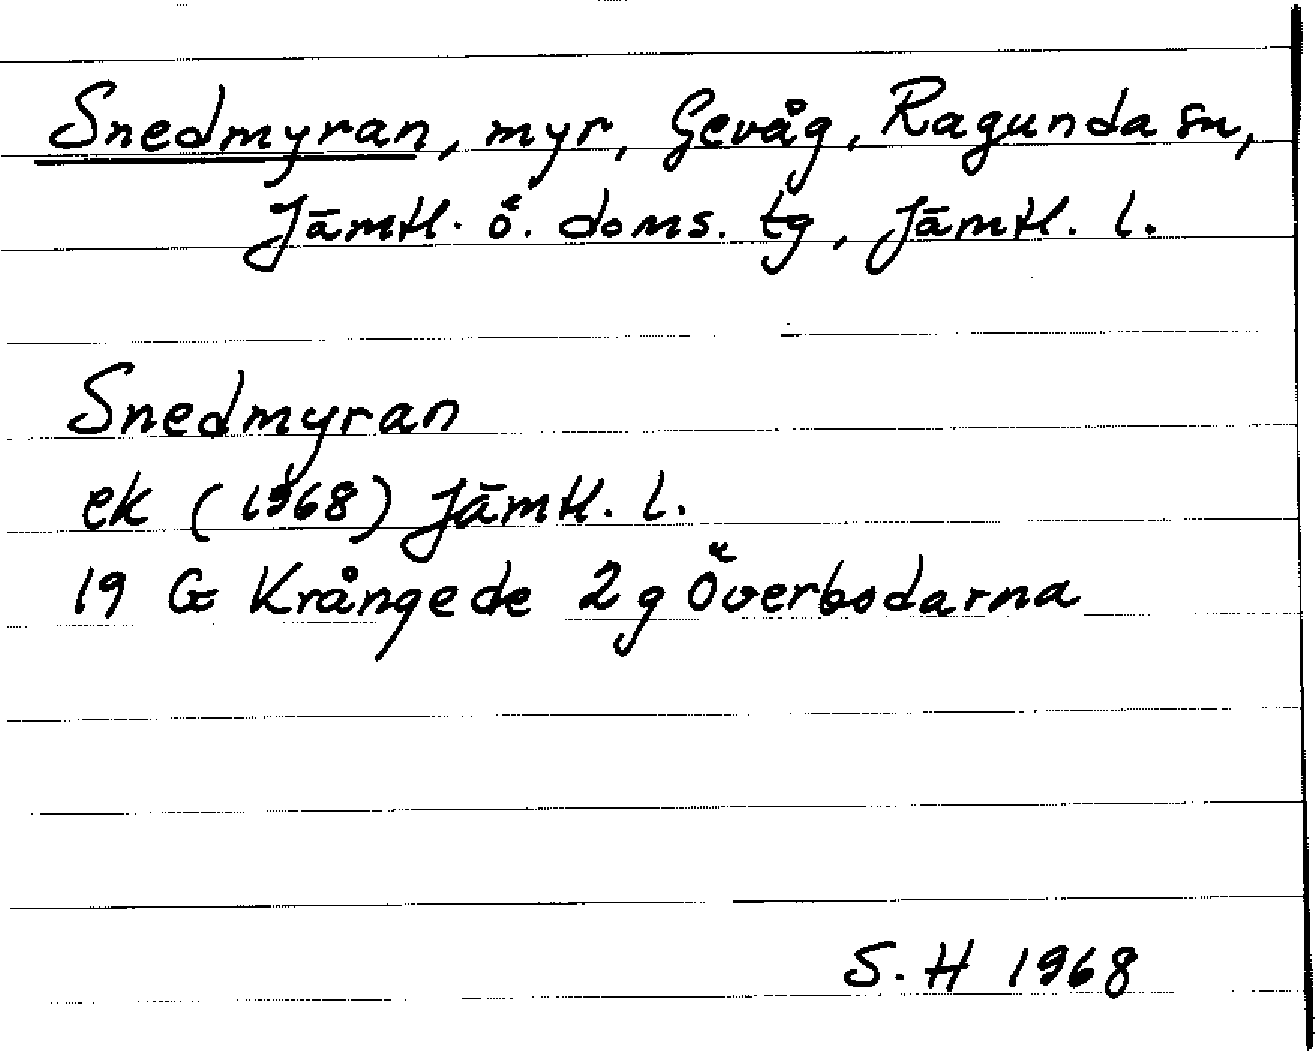 Snedmyran, myr, Gevåg, Ragunda sn,
Jämtl. ö. doms. tg, Jämtl. l.
Snedmyran
ek (1968) Jämtl. l.
19 G Krångede 2 g Överbodarna
S. H 1968